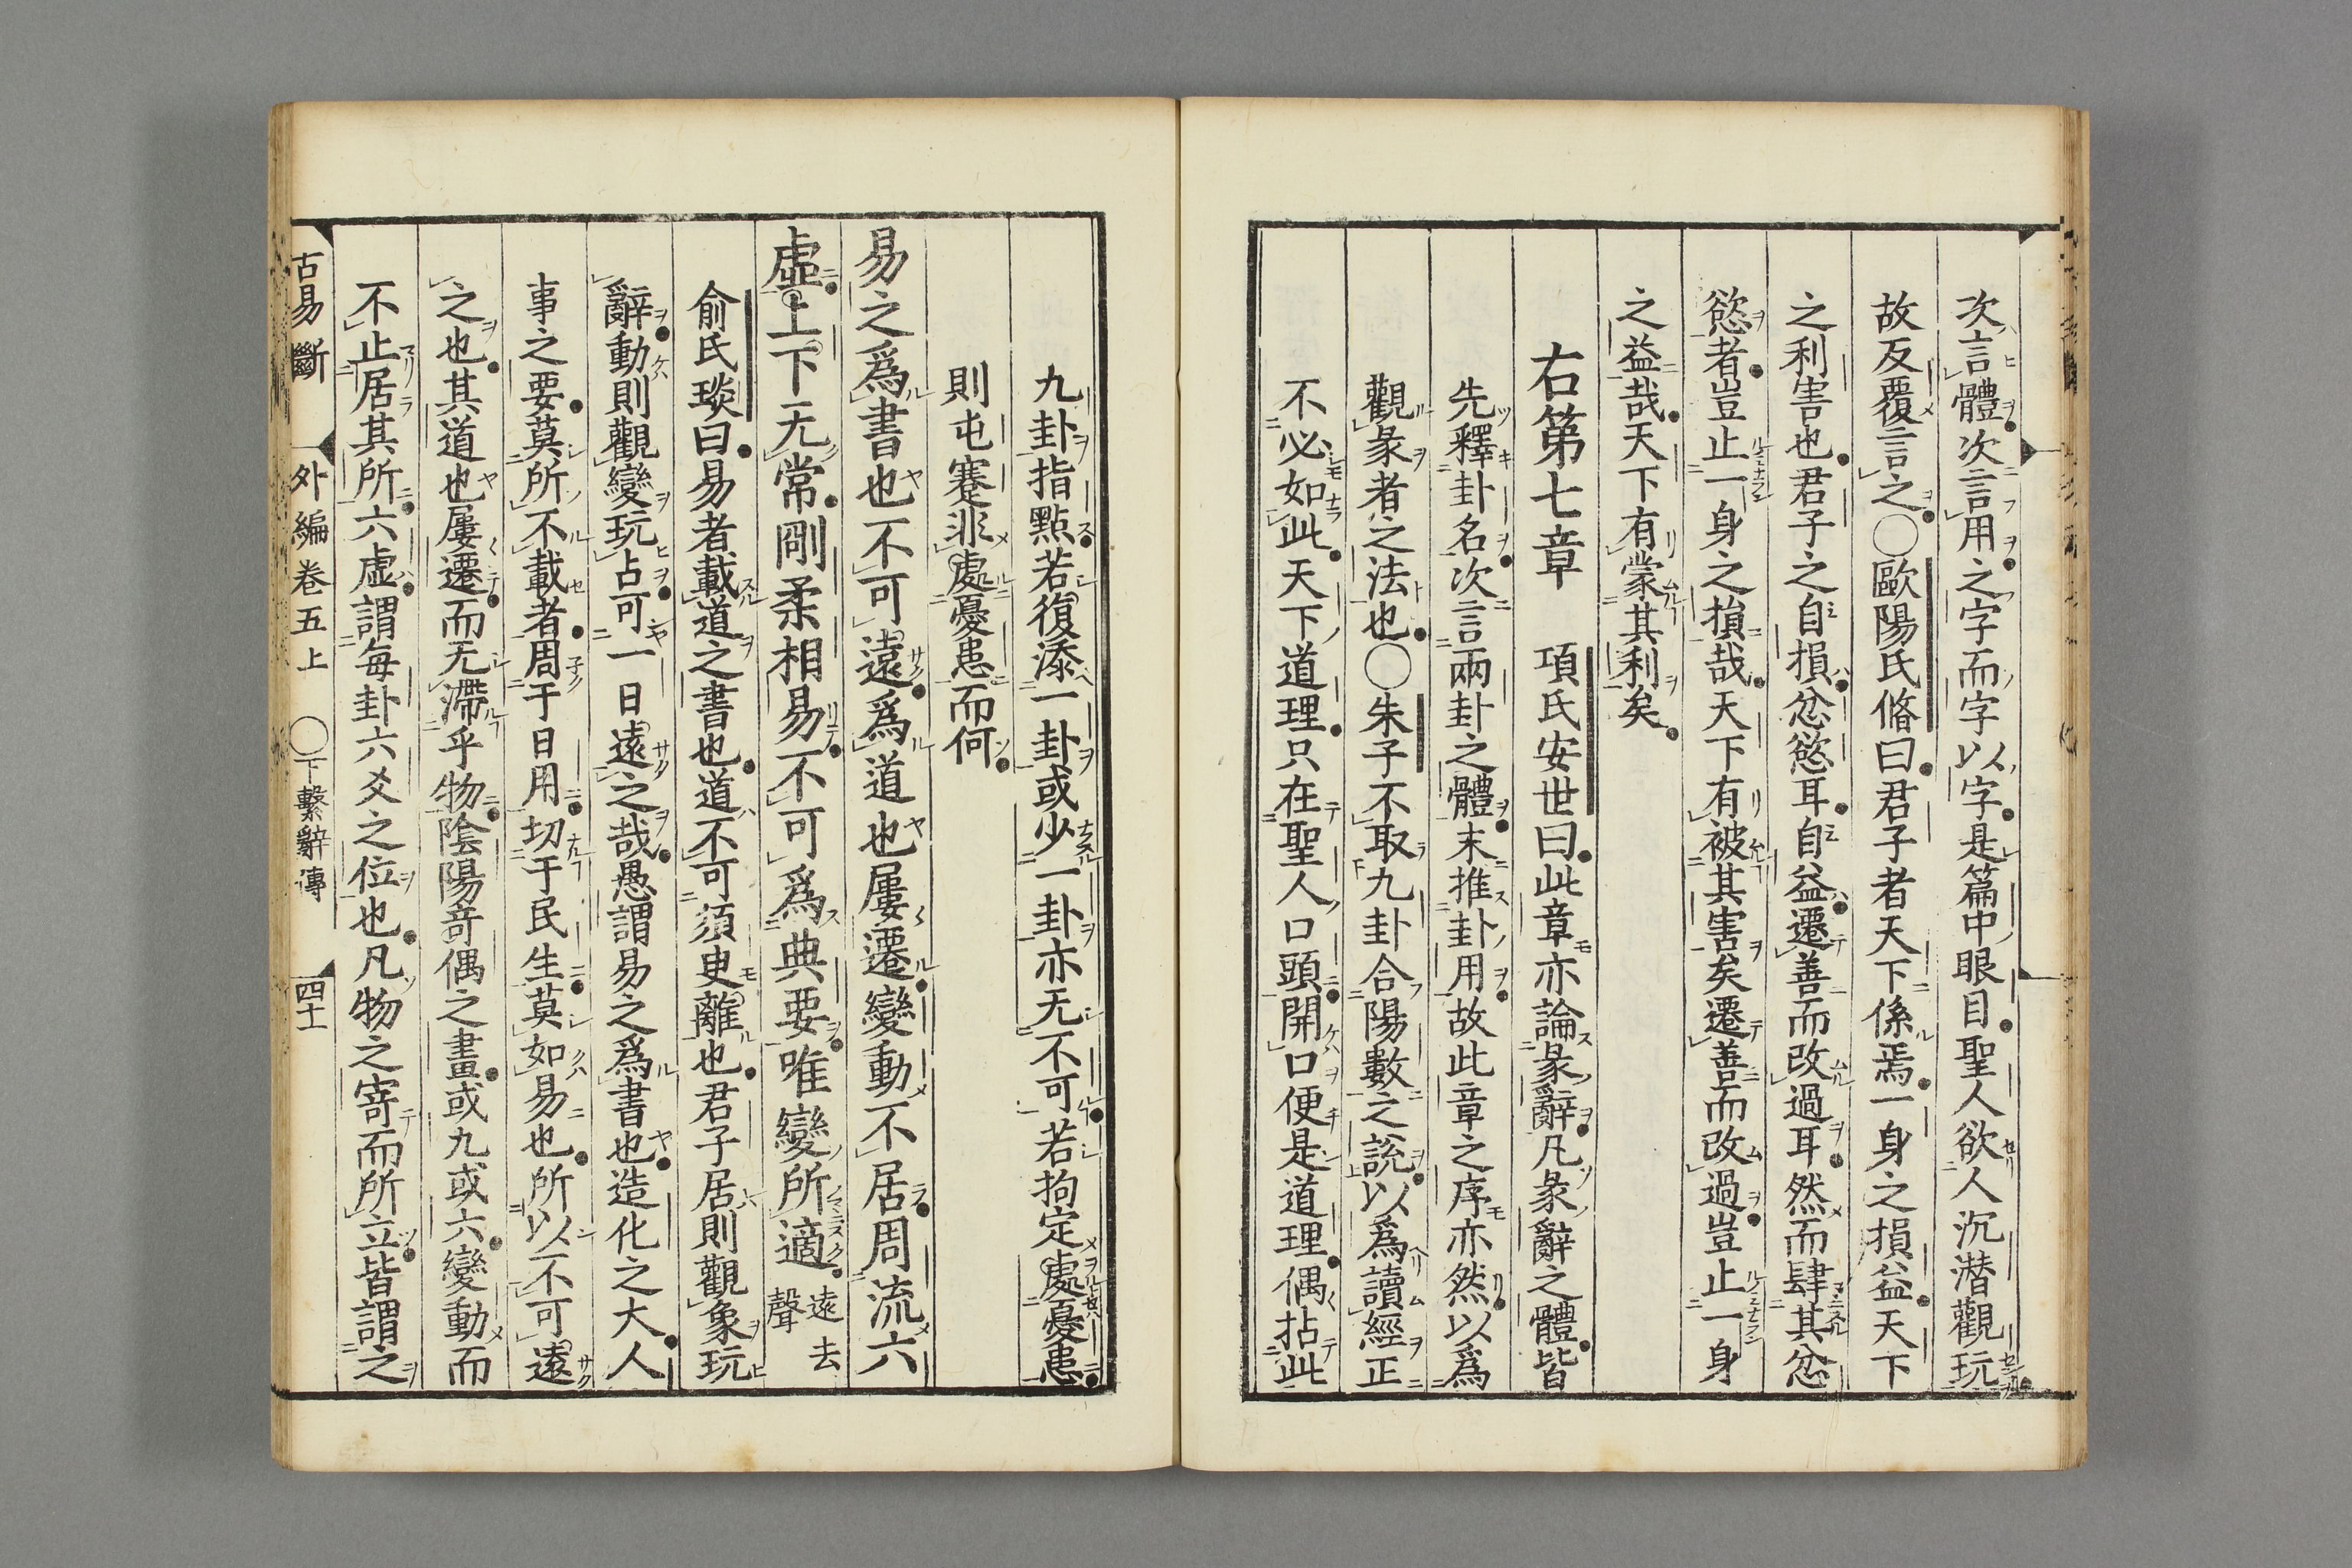 次言體次言用之字而字以字是篇中眼目聖人欲人沉潜觀玩
故反覆言之〇歐陽氏脩曰君子者天下係焉一身之損益天下
之利害也君子之自損忿慾耳自益遷善而改過耳然而肆其忿
慾者豈止一身之損哉天下有被其害矣遷善而改過豈止一身
之益哉天下有蒙其利矣
右第七章 項氏安世曰此章亦論彖辭凡彖辭之體皆
先釋卦名次言兩卦之體末推卦用故此章之序亦然以爲
觀彖者之法也〇朱子不取九卦合陽數之說以爲讀經正
不必如此天下道理只在聖人口頭開口便是道理偶拈此
九卦指點若復添一卦或少一卦亦无不可若拘定處憂患
則屯蹇非處憂患而何
易之爲書也不可遠爲道也屢遷變動不居周流六
虛上下无常剛柔相易不可爲典要唯變所適 遠去聲
俞氏琰曰易者載道之書也道不可須臾離也君子居則觀象玩
辭動則觀變玩占可一日遠之哉愚謂易之爲書也造化之大人
事之要莫所不載者周于日用切于民生莫如易也所以不可遠
之也其道也屢遷而无滯乎物陰陽奇偶之畫或九或六變動而
不止居其所六虛謂每卦六爻之位也凡物之寄而所立皆謂之
古易斷 外編卷五上 〇下繫辭傳 四十一